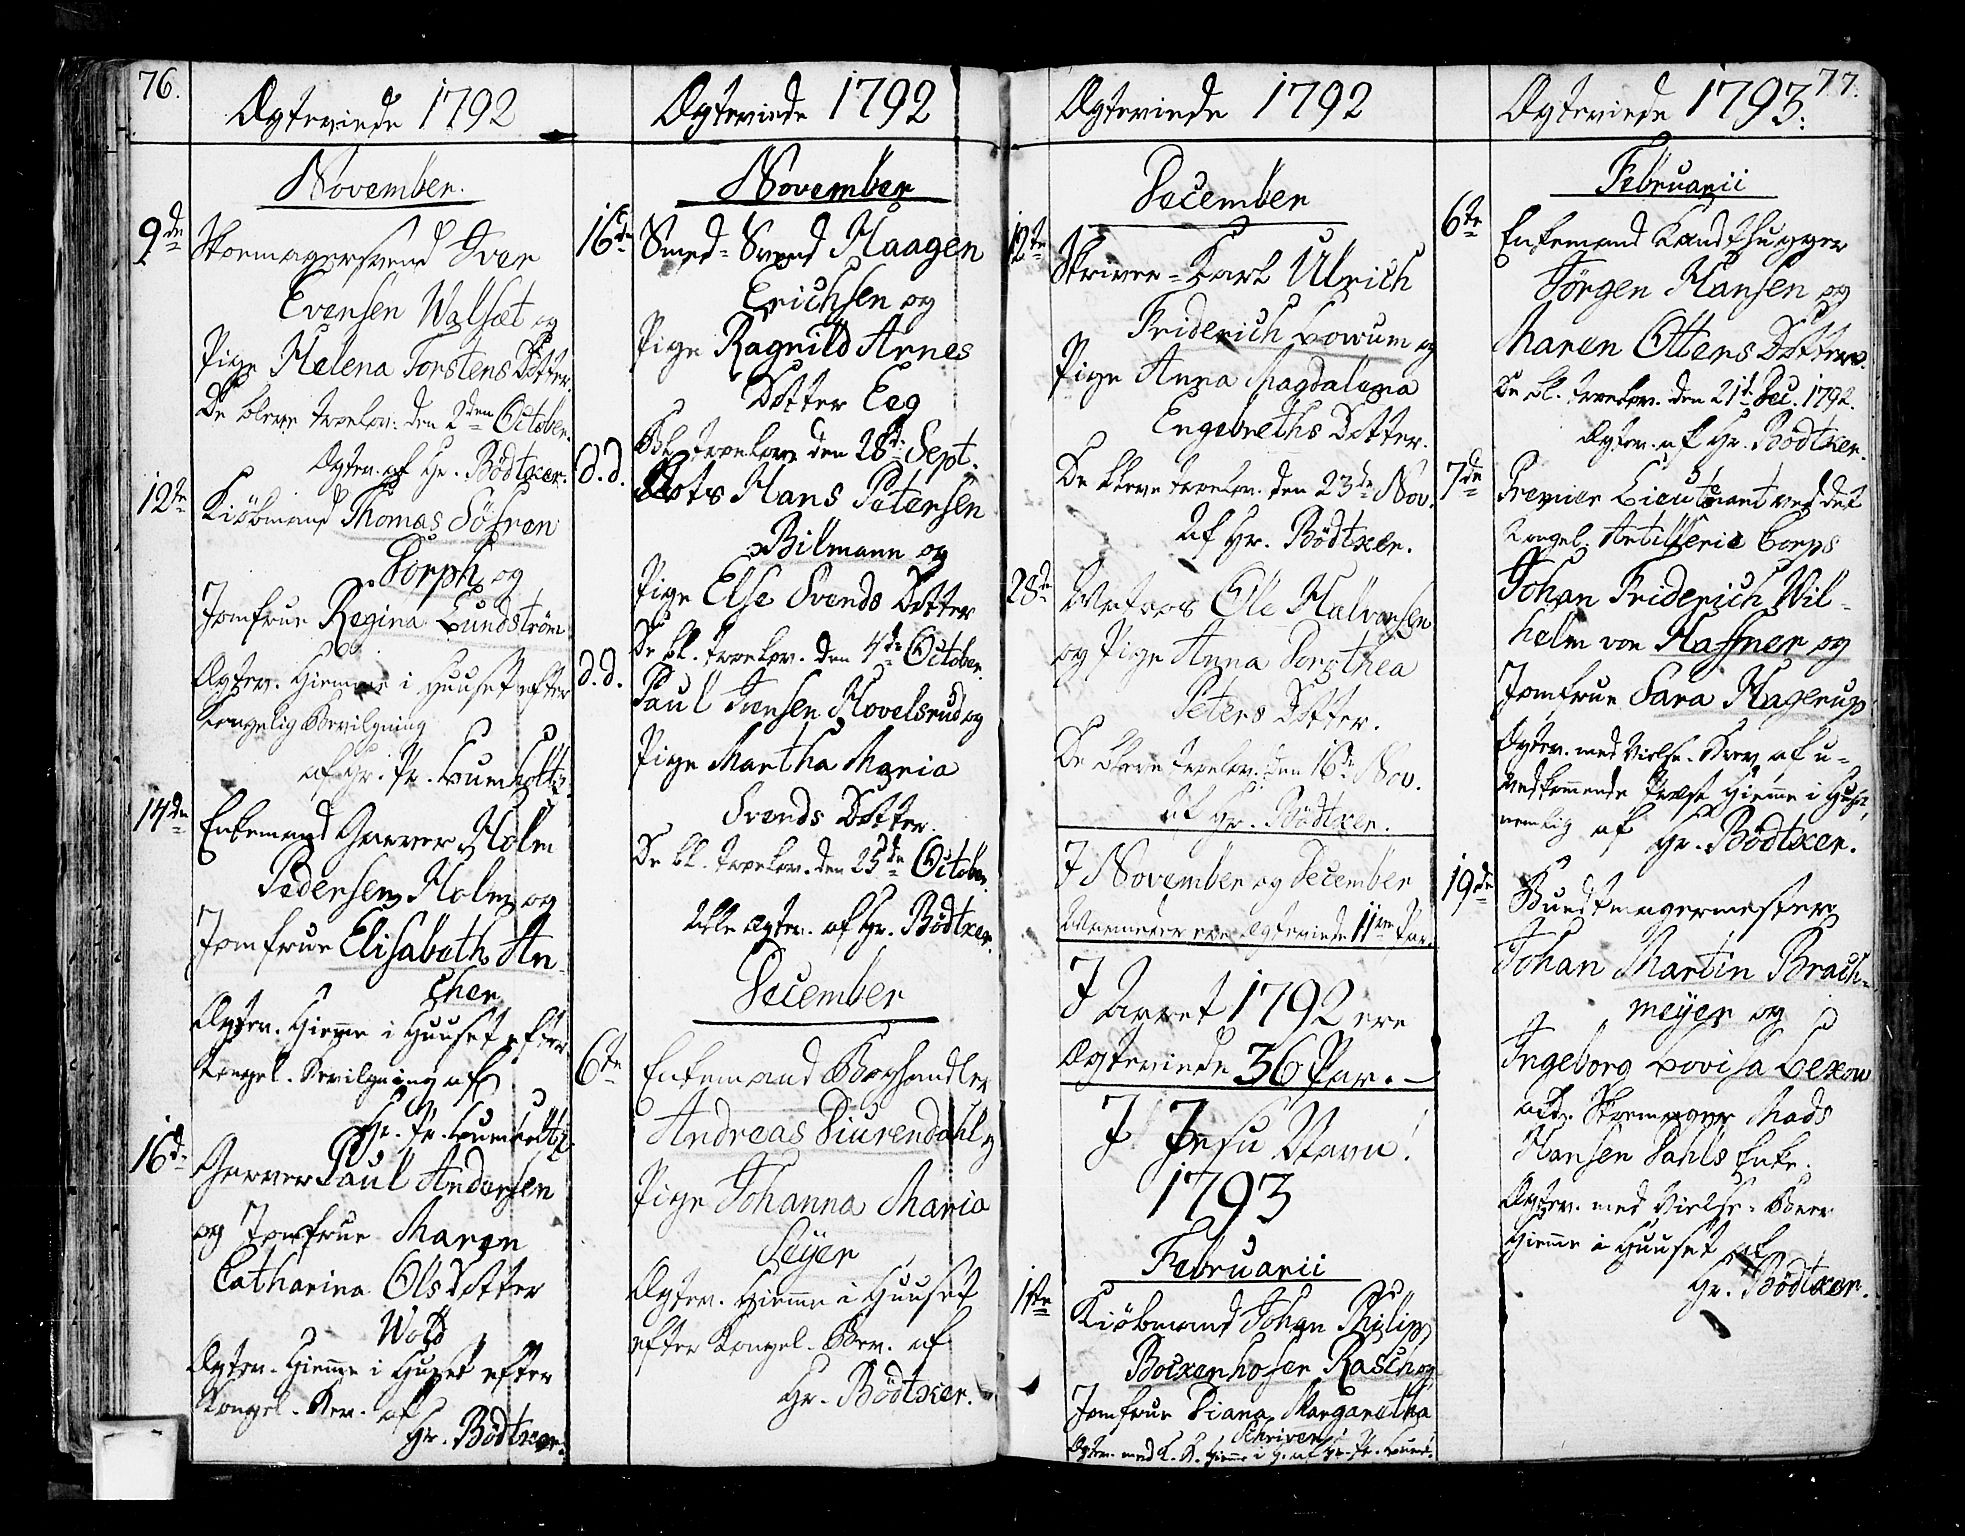 76.
Ægteviede 1792
November.
9de
Skomagersvend Iver
Evensen Walsæt og
Pige Helena Torstens Dotter
De bleve trolov. den 2den October.
Ægtev. af Hr. Bødtker.
12te
Kiöbmand Thomas Löfren
Dorph og
Jomfrue Regina Lundström
Ægtev. Hiemme i Huuset efter
Kongelig Bevilgning
af Hr. Pr. Lumholtz.
14de
Enkemand Garver Holm
Pedersen Holm og
Jomfrue Elisabeth An-
cher
Ægtev. Hiemme i Huuset efter
Kongel. Bevilgning af
Hr. Pr. Lumholtz.
16de
Garver Paul Andersen
og Jomfrue Maren
Catharina Ols Dotter
Wold
Ægtev. Hiemme i Huset efter
Kongel. Bev. af
Hr. Bødtker.
Ægteviede 1792
November
16de
Smed-Svend Haagen
Erichsen og
Pige Ragnild Arnes
Dotter Eeg
Bl. trolov. den 28de Sept.
d.d.
Lots Hans Petersen
Bilmann og
Pige Else Svends Dotter
De bl. trolov. den 4de October.
d.d.
Paul Jensen Hovelsrud og
Pige Martha Maria
Svends Dotter.
De bl. trolov. den 25de October.
Alle Ægtev. af Hr. Bødtker.
December
6te
Enkemand Boghandler
Andreas Diurendahl og
Pige Johanna Maria
Seyer
Ægtev. Hiemme i Huuset
efter Kongel. Bev. af
Hr. Bødtker.
Ægteviede 1792
December
12te
Skriver-Karl Ulrich
Friderich Lowum og
Pige Anna Magdalena
Engebreths Dotter.
De bleve trolov. den 23de Nov.
Af Hr. Bødtker.
28de
Matros Ole Halvorsen
og Pige Anna Dorothea
Peters Dotter.
De bleve trolov. den 16de Nov.
Af Hr. Bødtker.
I November og December
Maaneder ere Ægteviede 11ve Par.
I Aaret 1792 ere
Ægteviede 36 Par.
I Jesu Navn!
1793
Februarii
1ste
Kiöbmand Johan Philip
Bockenhofer Rasch og
Jomfrue Diana Margaretha
Schriver
Ægtev. med K. B. Hiemme i H. af Hr. Pr. Lumh.
77.
Ægteviede 1793.
Februarii
6te
Enkemand Kandthugger
Jörgen Hansen og
Maren Ottens Dotter.
De bl. trolov. den 21de Dec. 1792.
Ægtev. af Hr. Bødtker.
7de
Premier Lieutenant ved det
Kongel. Artillerie Corps
Johan Friderich Wil-
helm von Haffner og
Jomfrue Sara Hagerup
Ægtev. med Vielse-Brev af u-
vedkommende Præst Hiemme i Huset,
nemlig af Hr. Bødtker.
19de
Bundtmagermester
Johan Martin Brach-
meyer og
Ingeborg Lovisa Lexow
afd. Skomager Mads
Hansen Dahls Enke.
Ægtev. med Vielse-Brev
Hiemme i Huuset af
Hr. Bødtker.